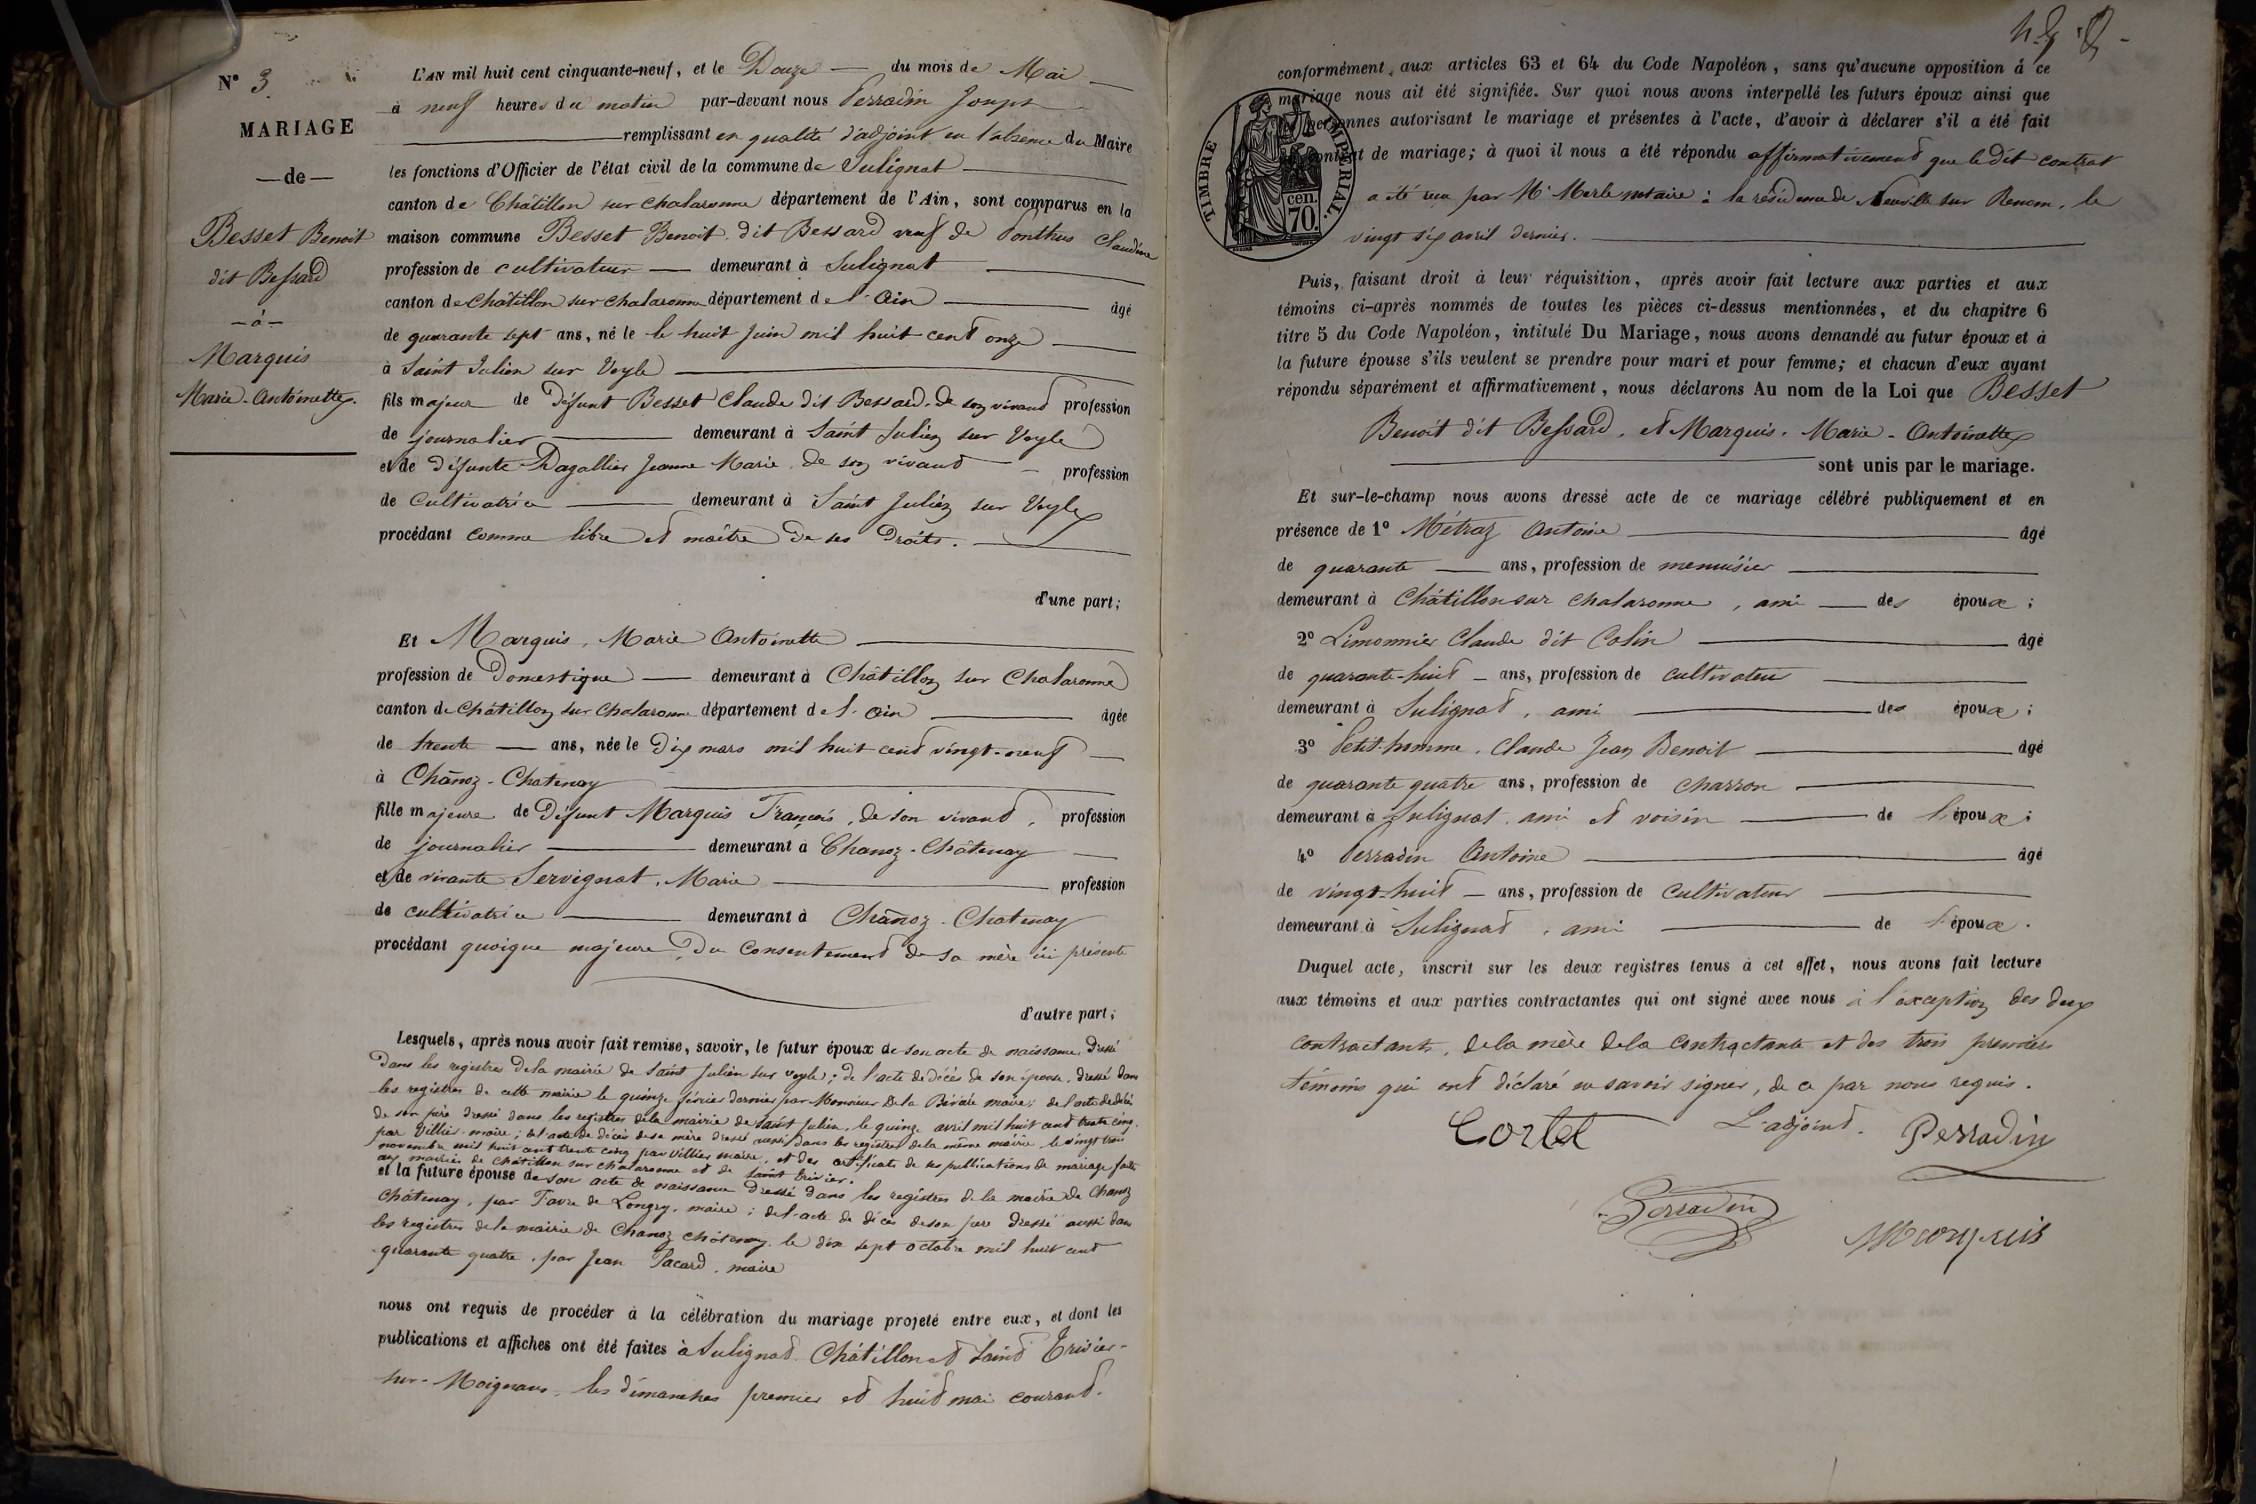 N° 3
MARIAGE
— de —
Besset Benoit
dit Bessard
— à —
Marquis
Marie-Antoinette.
L'AN mil huit cent cinquante-neuf, et le Douze — du mois de Mai —
à neuf heures du matin par-devant nous Perradin Joseph
remplissant en qualité d'adjoint en l'absence du Maire
les fonctions d'Officier de l'état civil de la commune de Sulignat
canton de Châtillon sur Chalaronne département de l'Ain, sont comparus en la
maison commune Besset Benoit dit Bessard veuf de Ponthus Claudine
profession de cultivateur — demeurant à Sulignat
canton de Châtillon sur chalaronne département de l'Ain — âgé
de quarante sept ans, né le le huit Juin mil huit cent onze
à Saint Julien sur Veyle
fils majeur de Défunt Besset Claude dit Bessard de son vivant profession
de journalier — demeurant à Saint Julien sur Veyle
et de défunte Dagallier Jeanne Marie de son vivant — profession
de cultivatrice — demeurant à Saint Julien sur Veyle
procédant comme libre et maître de ses Droits.
d'une part;
Et Marquis, Marie Antoinette
profession de Domestique — demeurant à Châtillon sur Chalaronne
canton de Châtillon sur Chalaronne département de l'Ain — âgée
de trente — ans, née le Dix mars mil huit cent vingt-neuf
à Chanoz-Chatenay
fille majeure de Défunt Marquis François, de son vivant, profession
de journalier — demeurant à Chanoz-Châtenay
et de vivante Servignat, Marie — profession
de cultivatrice — demeurant à Chanoz-Chatenay
procédant quoique majeure, du consentement de sa mère ici présente
d'autre part;
Lesquels, après nous avoir fait remise, savoir, le futur époux de son acte de naissance dressé
dans les registres de la mairie de Saint Julien sur veyle; de l'acte de décès de son épouse, dressé dans
les registres de cette mairie le quinze février dernier par Monsieur De la maire; de l'acte de décès
de son père dressé dans les registres de la mairie de Saint Julien, le quinze avril mil huit cent trente cinq,
par Villier maire; et l'acte de décès de sa mère dressé aussi dans les registres de la même mairie, le vingt trois
novembre mil huit cent trente cinq par Villier maire, et des certificats de ses publications de mariage faites
aux mairies de Châtillon sur chalaronne et de Saint Trivier.
et la future épouse de son acte de naissance dressé dans les registres de la mairie de Chanoz
Châtenay, par Favre de Longry, maire; de l'acte de décès de son père dressé aussi dans
les registres de la mairie de Chanoz châtenay le dix sept octobre mil huit cent
quarante quatre, par Jean Pacard, maire
nous ont requis de procéder à la célébration du mariage projeté entre eux, et dont les
publications et affiches ont été faites à Sulignat Châtillon et Saint Trivier-
sur-Moignans, les dimanches premier et huit mai courant.
conformément aux articles 63 et 64 du Code Napoléon, sans qu'aucune opposition à ce
mariage nous ait été signifiée. Sur quoi nous avons interpellé les futurs époux ainsi que
personnes autorisant le mariage et présentes à l'acte, d'avoir à déclarer s'il a été fait
contrat de mariage; à quoi il nous a été répondu affirmativement que le dit contrat
a été reçu par Me Merle notaire à la résidence de Neuville sur Renom, le
vingt six avril dernier.
TIMBRE IMPÉRIAL.
cen.
70.
Puis, faisant droit à leur réquisition, après avoir fait lecture aux parties et aux
témoins ci-après nommés de toutes les pièces ci-dessus mentionnées, et du chapitre 6
titre 5 du Code Napoléon, intitulé Du Mariage, nous avons demandé au futur époux et à
la future épouse s'ils veulent se prendre pour mari et pour femme; et chacun d'eux ayant
répondu séparément et affirmativement, nous déclarons Au nom de la Loi que Besset
Benoit dit Bessard, et Marquis, Marie-Antoinette
sont unis par le mariage.
Et sur-le-champ nous avons dressé acte de ce mariage célébré publiquement et en
présence de 1° Métraz Antoine — âgé
de quarante — ans, profession de menuisier
demeurant à Châtillon sur Chalaronne, ami — des époux;
2° Limonnier Claude dit Colin — âgé
de quarante-huit — ans, profession de cultivateur
demeurant à Sulignat, ami — des époux;
3° Petit-homme, Claude Jean Benoit — âgé
de quarante quatre ans, profession de charron
demeurant à Sulignat, ami et voisin — de l'époux;
4° Perradin Antoine — âgé
de vingt-huit — ans, profession de cultivateur
demeurant à Sulignat, ami — de l'époux.
Duquel acte, inscrit sur les deux registres tenus à cet effet, nous avons fait lecture
aux témoins et aux parties contractantes qui ont signé avec nous à l'exception des deux
contractants, de la mère de la contractante et des trois premiers
témoins qui ont déclaré ne savoir signer, de ce par nous requis.
Cortet L'adjoint. Perradin
Perradin
Marquis